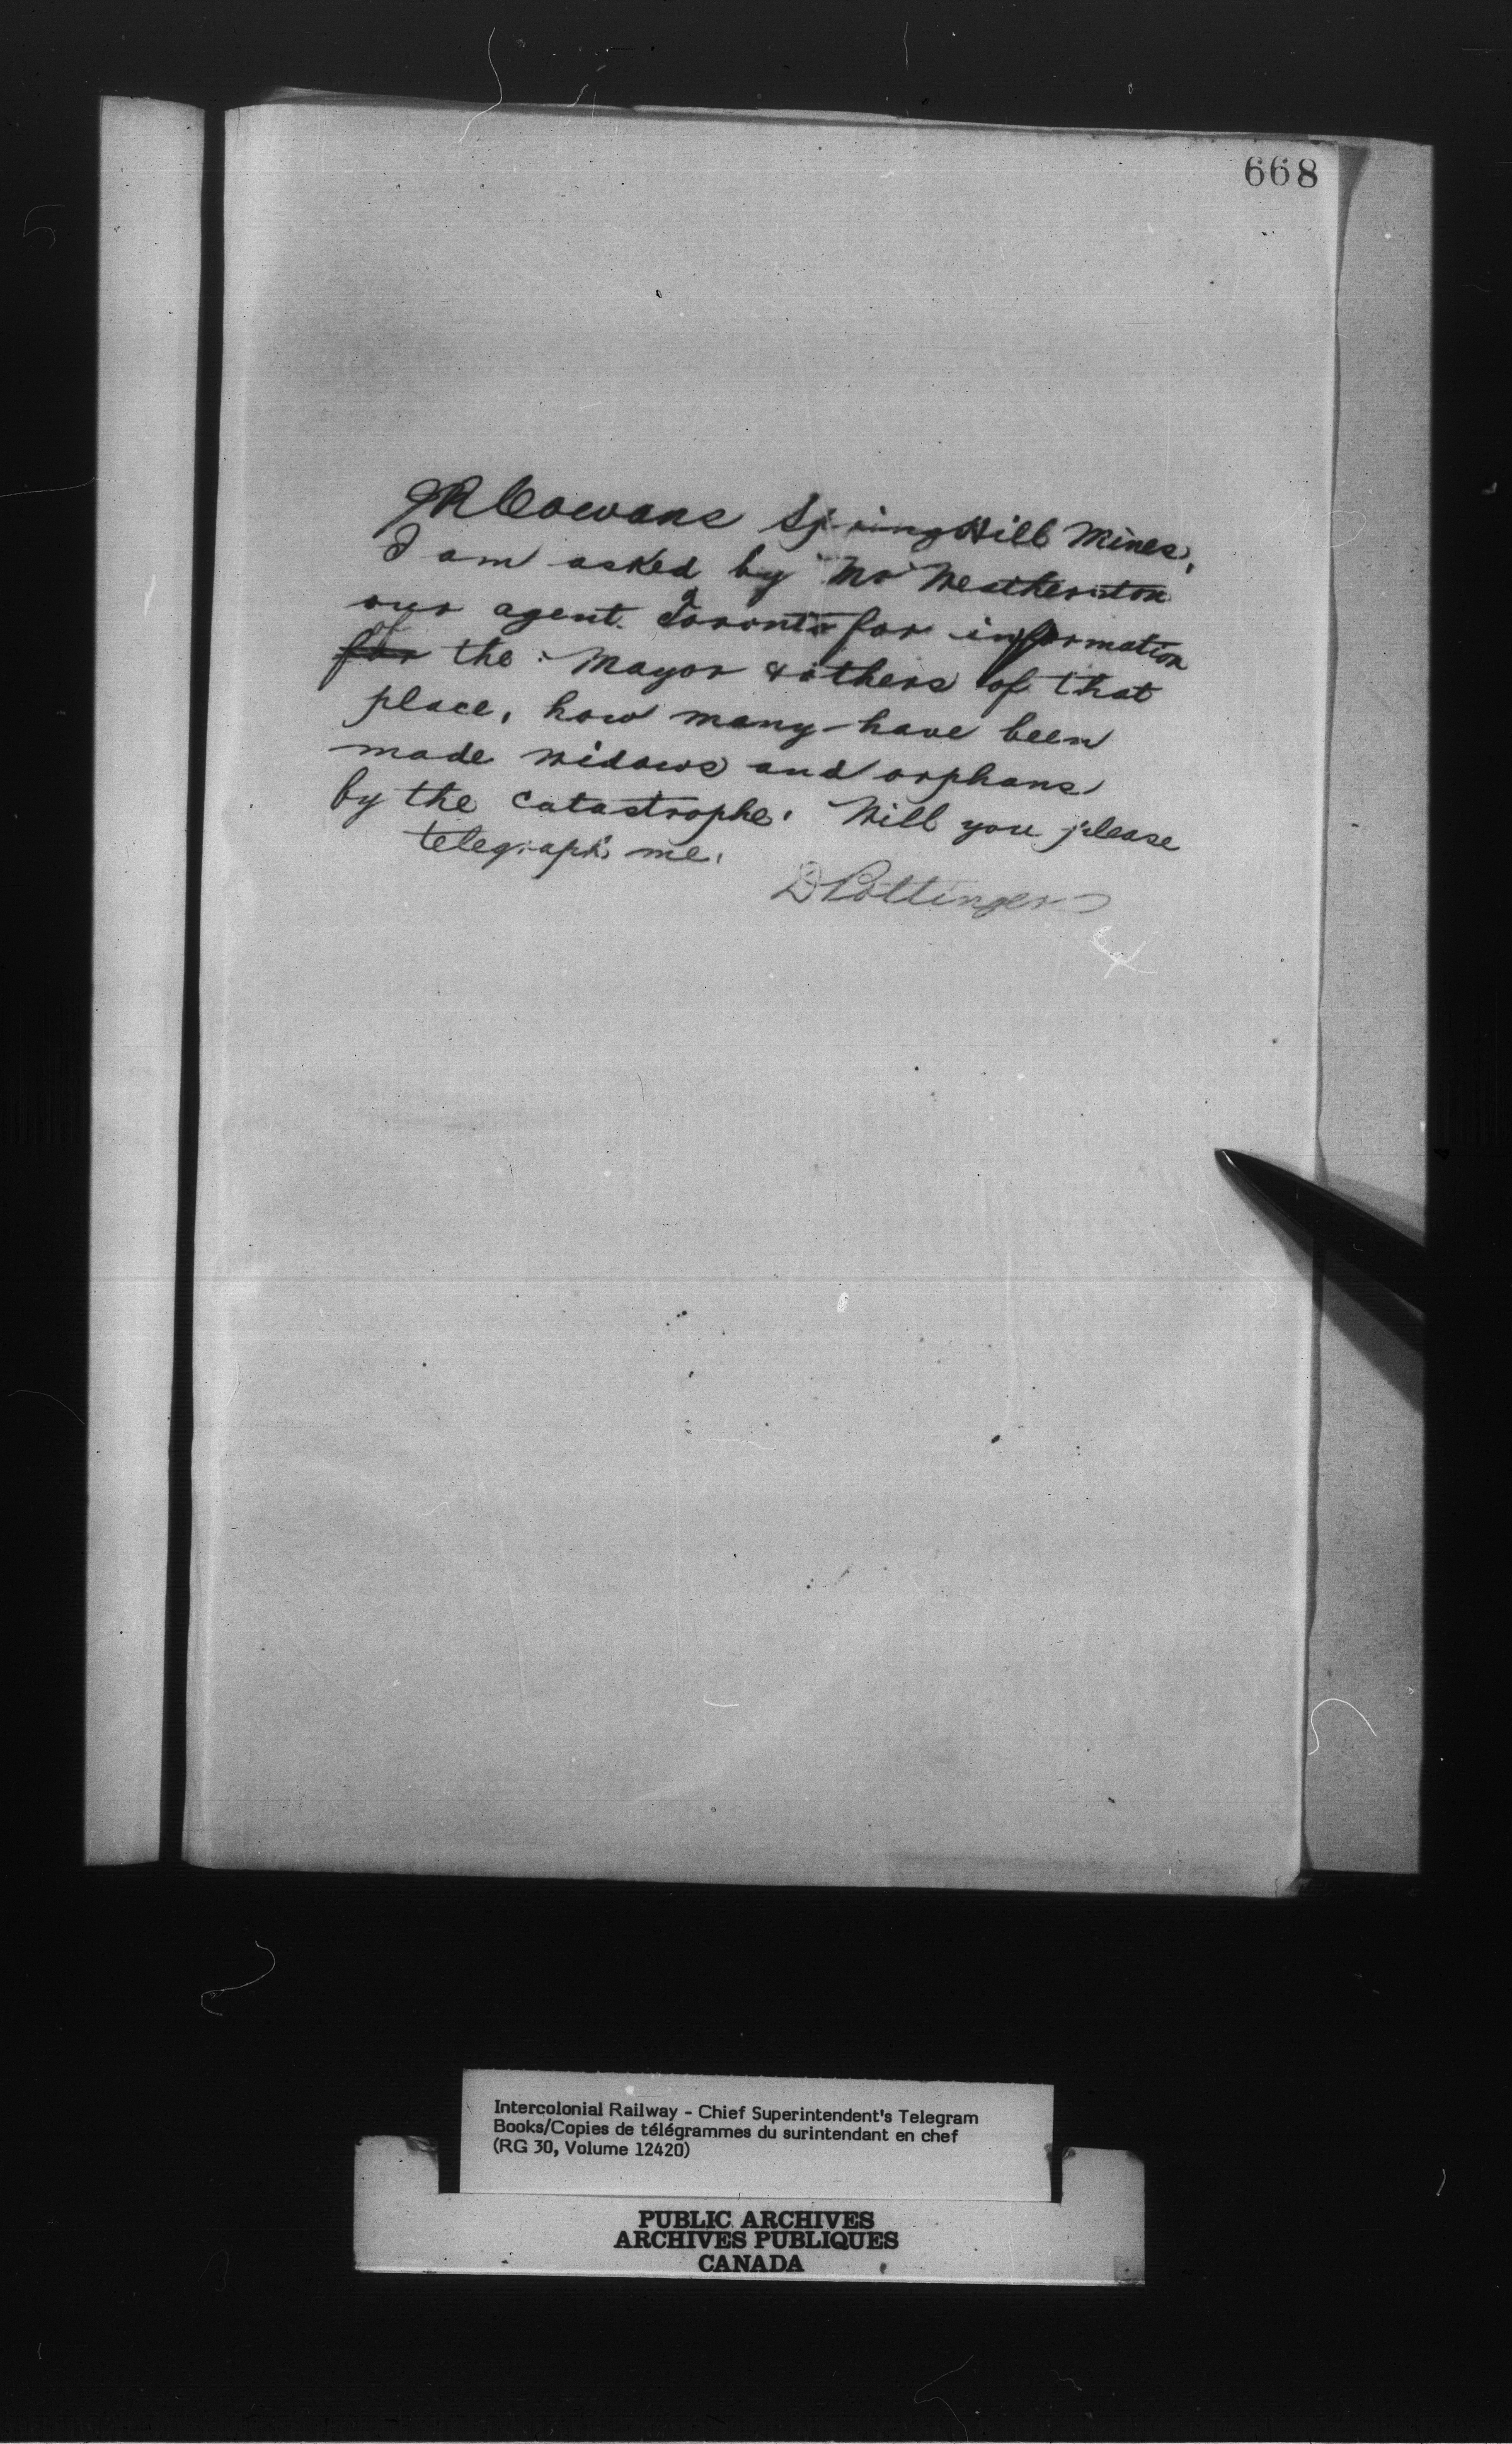 668
JR Cowans Spring Hill Mines,
I am asked by Mr Weatherston
our agent Toronto for information
of
for the Mayor & others of that
place, how many have been
made widows and orphans
by the catastrophe. Will you please
telegraph me.
D Pottinger
Intercolonial Railway - Chief Superintendent's Telegram
Books/Copies de télégrammes du surintendant en chef
(RG 30, Volume 12420)
PUBLIC ARCHIVES
ARCHIVES PUBLIQUES
CANADA